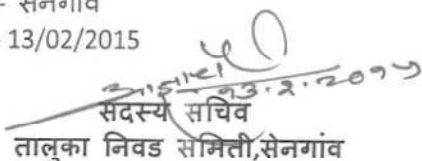 - सेनगाव
- 13/02/2015
१३.२.२०१५
सदस्य सचिव
तालुका निवड समिती,सेनगांव